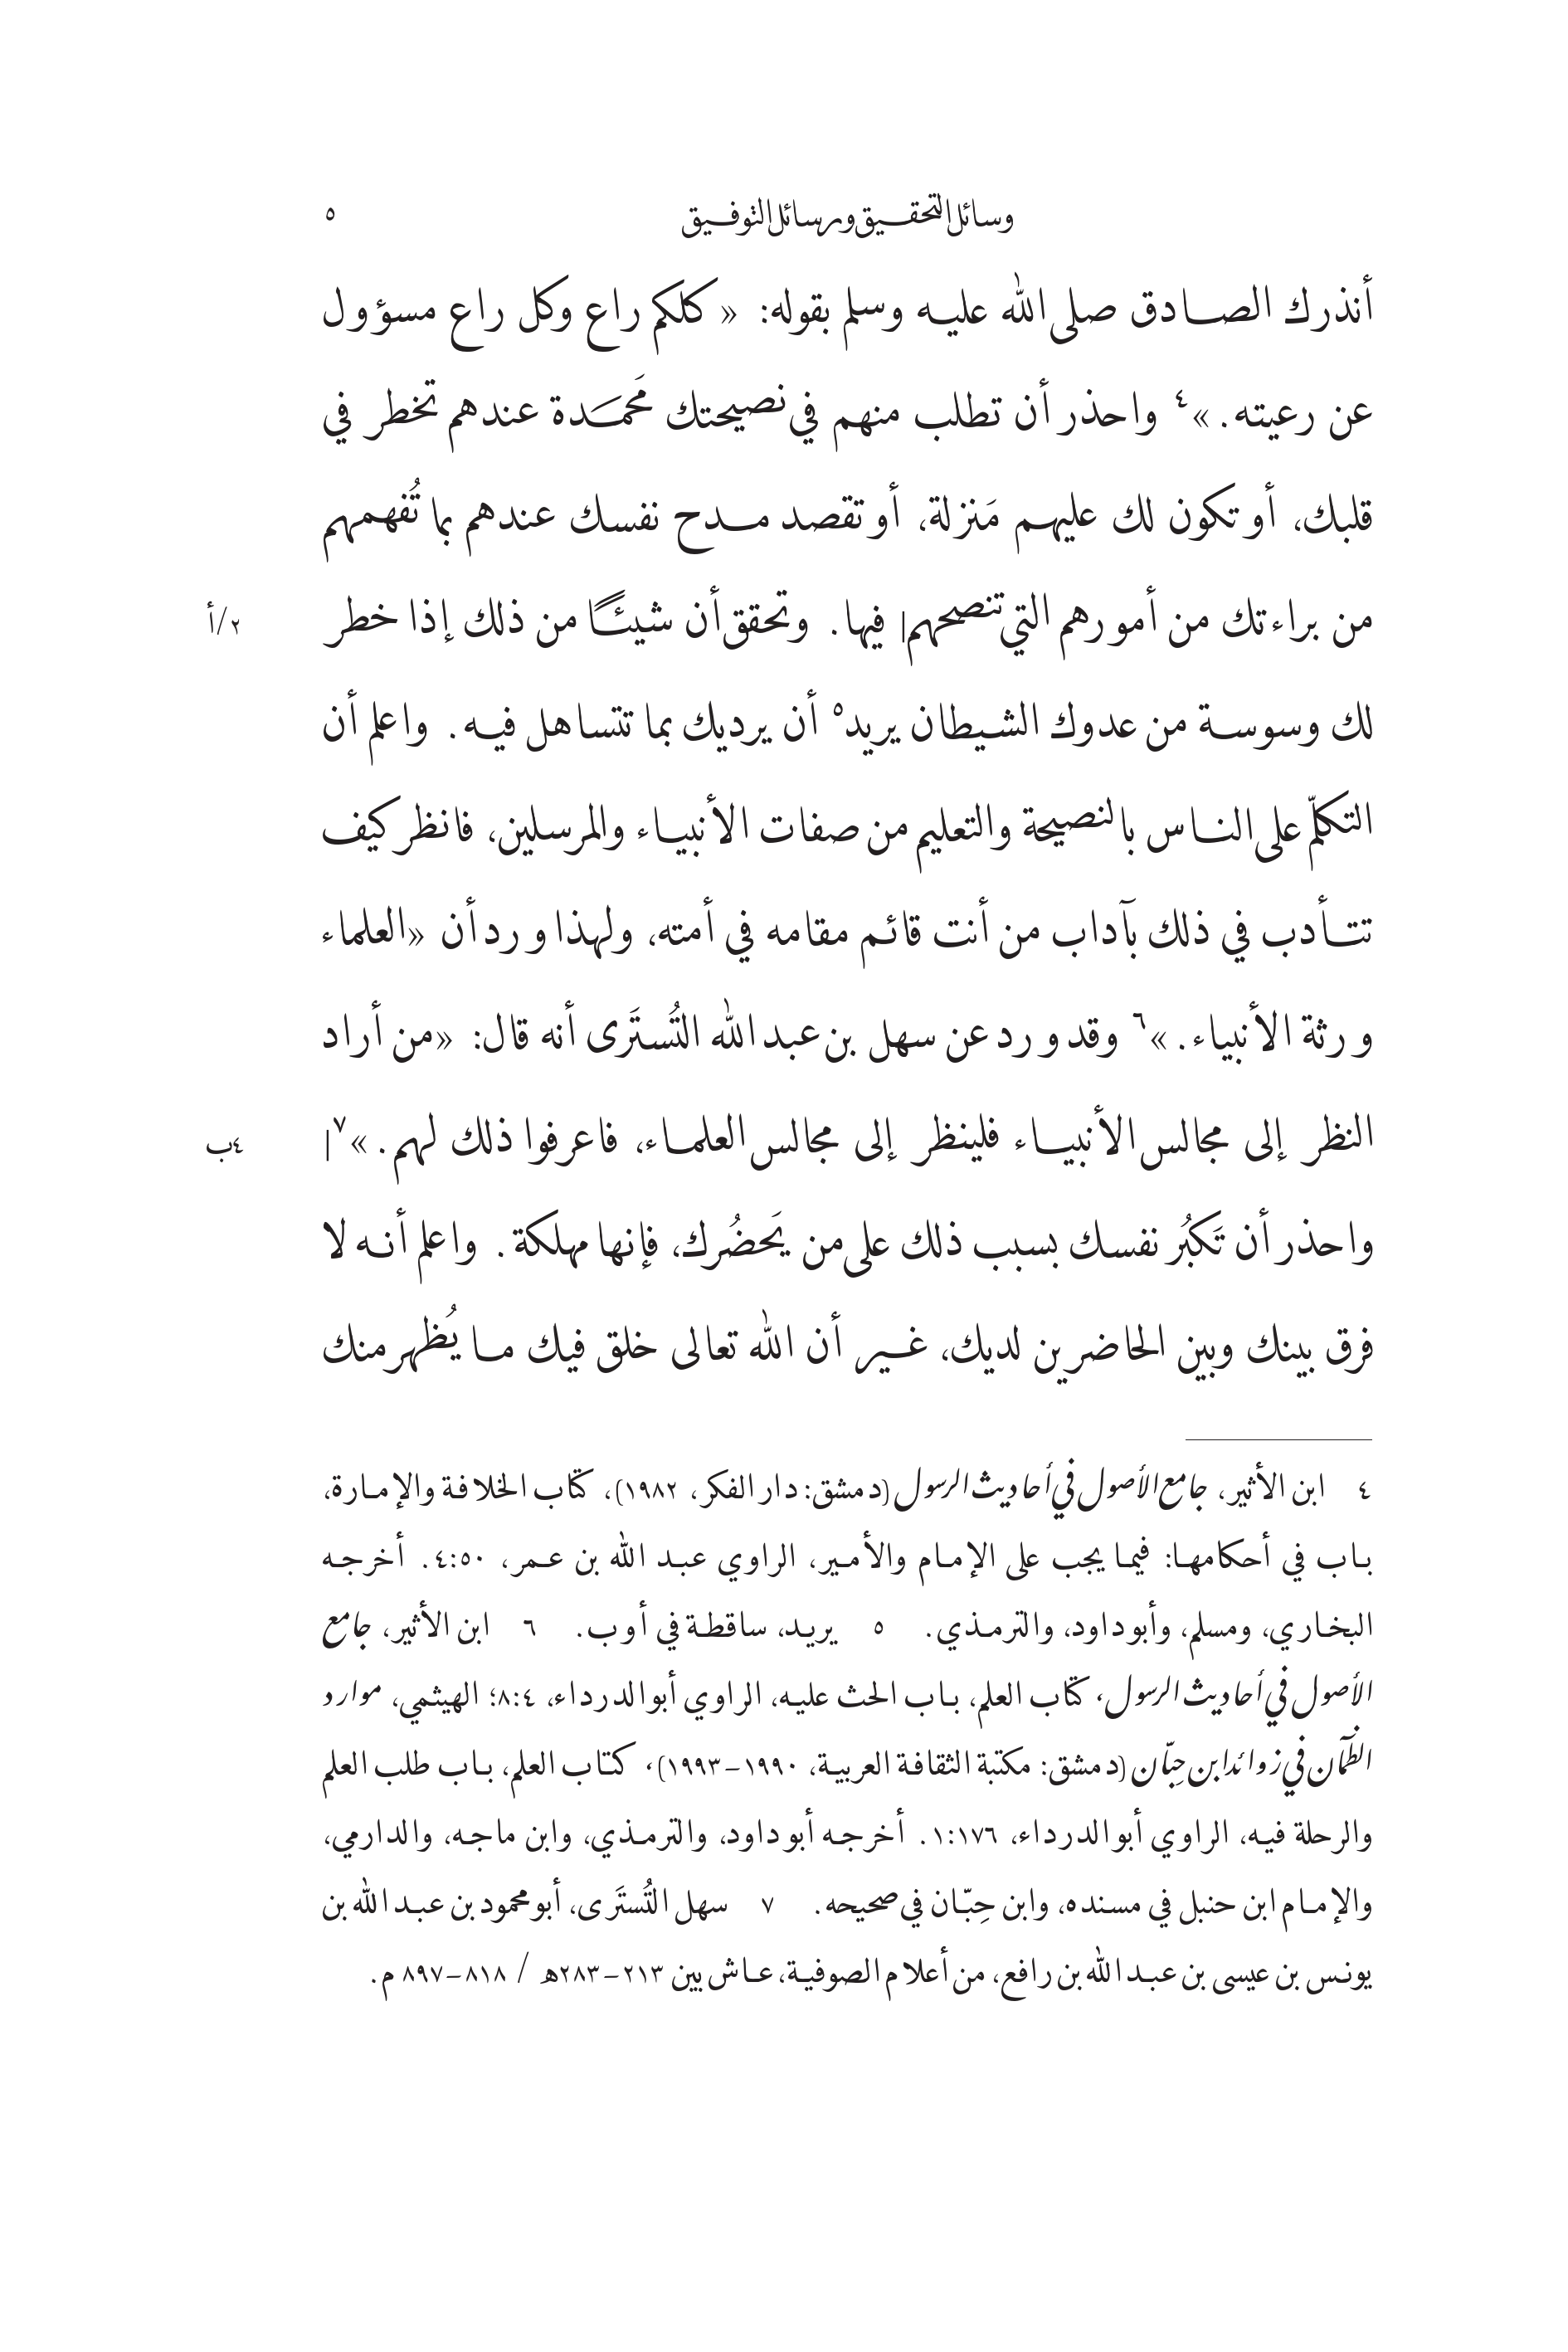 وسائل التحقيق ورسائل التوفيق ٥
أنذرك الصادق صلى الله عليه وسلم بقوله: «كلكم راع وكل راع مسؤول
عن رعيته.»٤ واحذر أن تطلب منهم في نصيحتك مَحمَدة عندهم تخطر في
قلبك، أو تكون لك عليهم مَنزلة، أو تقصد مدح نفسك عندهم بما تُفهمهم
من براءتك من أمورهم التي تنصحهم| فيها. وتحقق أن شيئًا من ذلك إذا خطر ٢/أ
لك وسوسة من عدوك الشيطان يريد٥ أن يرديك بما تتساهل فيه. واعلم أن
التكلّم على الناس بالنصيحة والتعليم من صفات الأنبياء والمرسلين، فانظر كيف
تتأدب في ذلك بآداب من أنت قائم مقامه في أمته، ولهذا ورد أن «العلماء
ورثة الأنبياء.»٦ وقد ورد عن سهل بن عبد الله التُستَرى أنه قال: «من أراد
النظر إلى مجالس الأنبياء فلينظر إلى مجالس العلماء، فاعرفوا ذلك لهم.»٧| ٤ب
واحذر أن تَكبُر نفسك بسبب ذلك على من يَحضُرك، فإنها مهلكة. واعلم أنه لا
فرق بينك وبين الحاضرين لديك، غير أن الله تعالى خلق فيك ما يُظهر منك
٤ ابن الأثير، جامع الأصول في أحاديث الرسول (دمشق: دار الفكر، ١٩٨٢)، كتاب الخلافة والإمارة،
باب في أحكامها: فيما يجب على الإمام والأمير، الراوي عبد الله بن عمر، ٤:٥٠. أخرجه
البخاري، ومسلم، وأبو داود، والترمذي. ٥ يريد، ساقطة في أ و ب. ٦ ابن الأثير، جامع
الأصول في أحاديث الرسول، كتاب العلم، باب الحث عليه، الراوي أبو الدرداء، ٨:٤؛ الهيثمي، موارد
الظمآن في زوائد ابن حِبّان (دمشق: مكتبة الثقافة العربية، ١٩٩٠–١٩٩٣)، كتاب العلم، باب طلب العلم
والرحلة فيه، الراوي أبو الدرداء، ١:١٧٦. أخرجه أبو داود، والترمذي، وابن ماجه، والدارمي،
والإمام ابن حنبل في مسنده، وابن حِبّان في صحيحه. ٧ سهل التُستَرى، أبو محمود بن عبد الله بن
يونس بن عيسى بن عبد الله بن رافع، من أعلام الصوفية، عاش بين ٢١٣–٢٨٣ه / ٨١٨–٨٩٧ م.